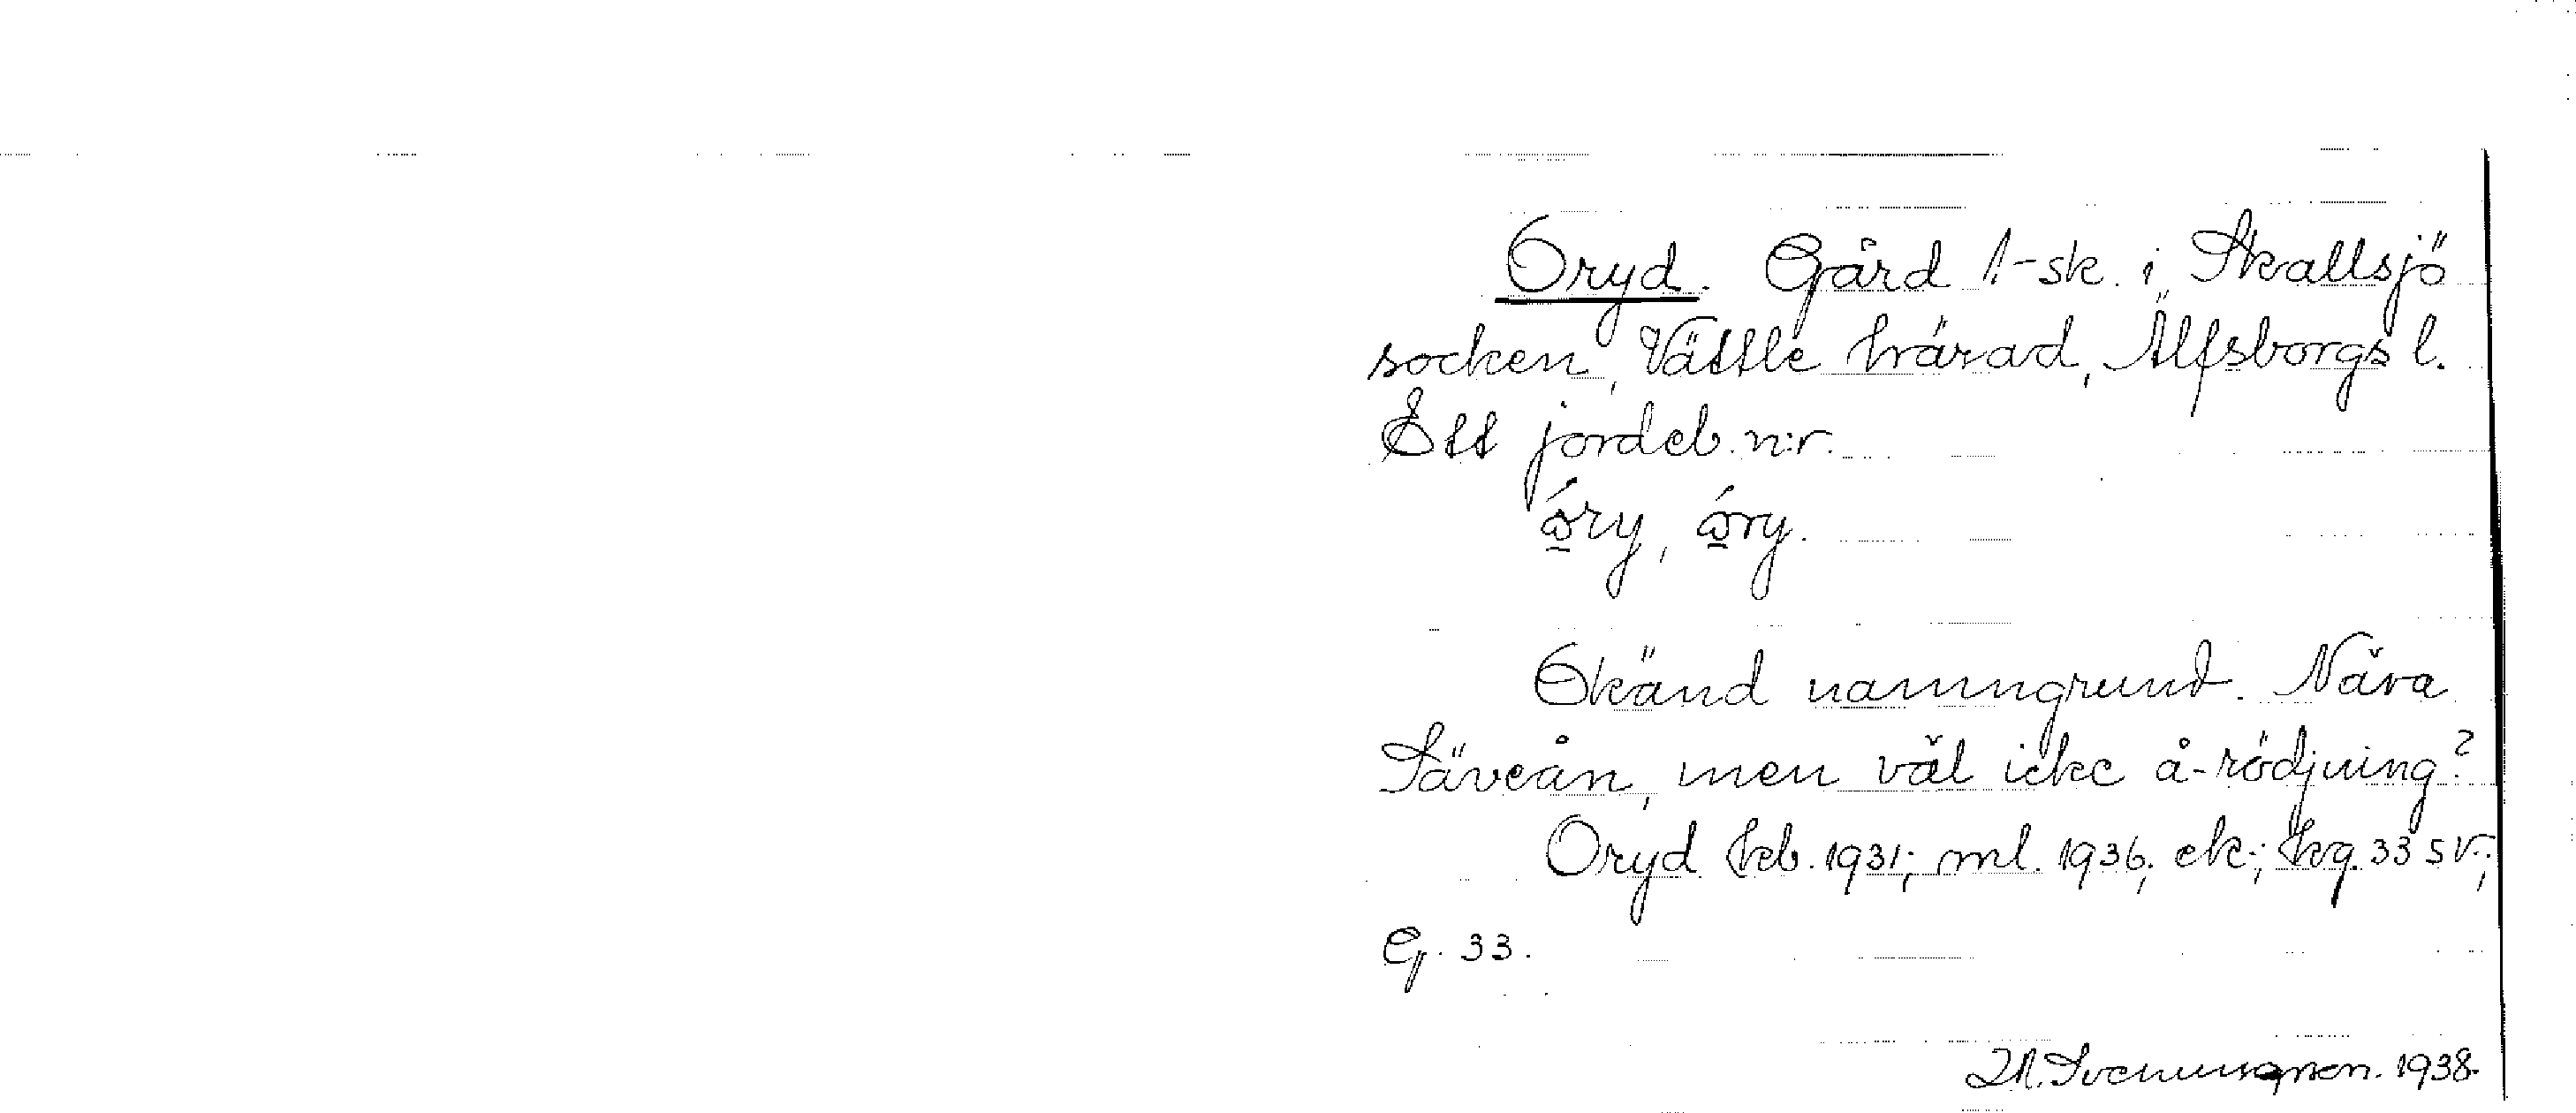 Oryd. Gård 1.-sk. i Skallsjö
socken, Vättle härad, Älfsborgs l.
Ett jordeb. n:r.
ώ̲ry, ώ̲ry.
Okänd namngrund. Nära
Säveån, men väl icke å-rödjning?
Oryd kb. 1931; ml. 1936; ek; kg. 33 SV;
G. 33.
1938.